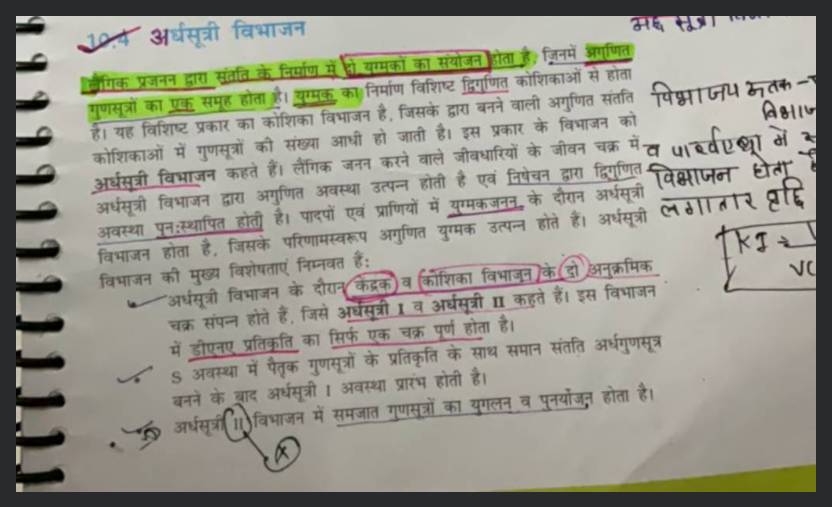 10.4 अर्धसूत्री विभाजन
लैंगिक प्रजनन द्वारा संतति के निर्माण में दो युग्मकों का संयोजन होता है, जिनमें अगुणित
गुणसूत्रों का एक समूह होता है। युग्मक का निर्माण विशिष्ट द्विगुणित कोशिकाओं से होता
है। यह विशिष्ट प्रकार का कोशिका विभाजन है, जिसके द्वारा बनने वाली अगुणित संतति
कोशिकाओं में गुणसूत्रों की संख्या आधी हो जाती है। इस प्रकार के विभाजन को
अर्धसूत्री विभाजन कहते हैं। लैंगिक जनन करने वाले जीवधारियों के जीवन चक्र में
अर्धसूत्री विभाजन द्वारा अगुणित अवस्था उत्पन्न होती है एवं निषेचन द्वारा द्विगुणित
अवस्था पुनःस्थापित होती है। पादपों एवं प्राणियों में युग्मकजनन के दौरान अर्धसूत्री
विभाजन होता है, जिसके परिणामस्वरूप अगुणित युग्मक उत्पन्न होते हैं। अर्धसूत्री
विभाजन की मुख्य विशेषताएं निम्नवत हैं:
अर्धसूत्री विभाजन के दौरान केंद्रक व कोशिका विभाजन के दो अनुक्रमिक
चक्र संपन्न होते हैं, जिसे अर्धसूत्री I व अर्धसूत्री II कहते हैं। इस विभाजन
में डीएनए प्रतिकृति का सिर्फ एक चक्र पूर्ण होता है।
S अवस्था में पैतृक गुणसूत्रों के प्रतिकृति के साथ समान संतति अर्धगुणसूत्र
बनने के बाद अर्धसूत्री I अवस्था प्रारंभ होती है।
अर्धसूत्री II विभाजन में समजात गुणसूत्रों का युगलन व पुनर्योजन होता है।
सूत्री
विभाज्य
व में
विभाजन होता
लगातार वृद्धि